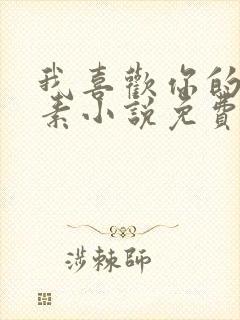 我喜歡你的
素小說免費
涉棘師